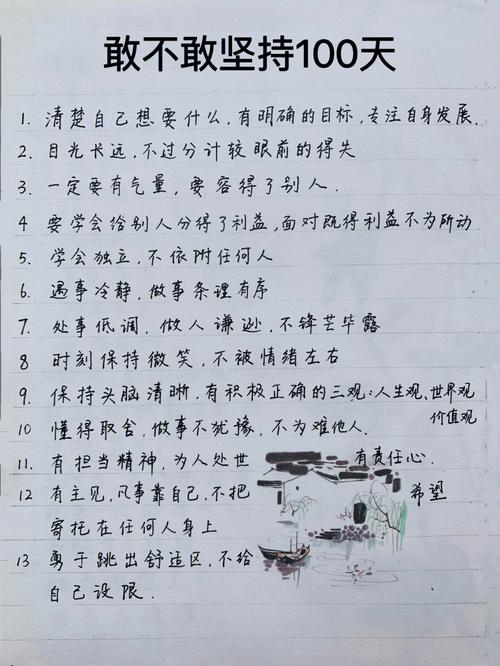 敢不敢坚持100天
1. 清楚自己想要什么,有明确的目标,专注自身发展.
2. 目光长远,不过分计较眼前的得失
3. 一定要有气量,要容得了别人.
4 要学会给别人分得了利益,面对既得利益不为所动
5. 学会独立,不依附任何人
6. 遇事冷静,做事条理有序
7. 处事低调,做人谦逊,不锋芒毕露
8 时刻保持微笑,不被情绪左右
9. 保持头脑清晰,有积极正确的三观:人生观、世界观
价值观
10 懂得取舍,做事不犹豫,不为难他人、
11. 有担当精神,为人处世 有责任心.
12 有主见,凡事靠自己,不把 希望
寄托在任何人身上
13 勇于跳出舒适区,不给
自己设限.